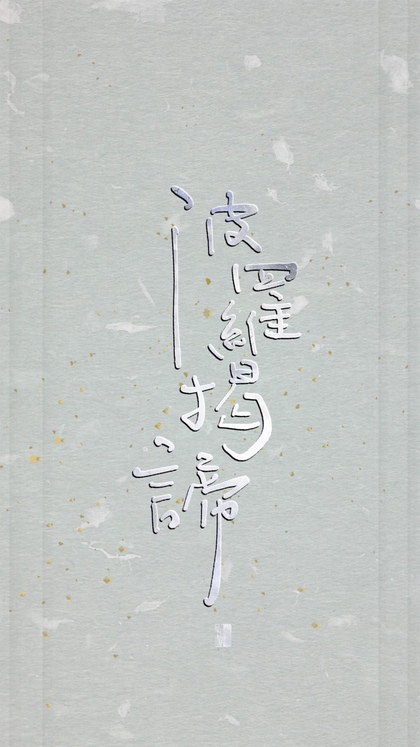 波羅揭諦